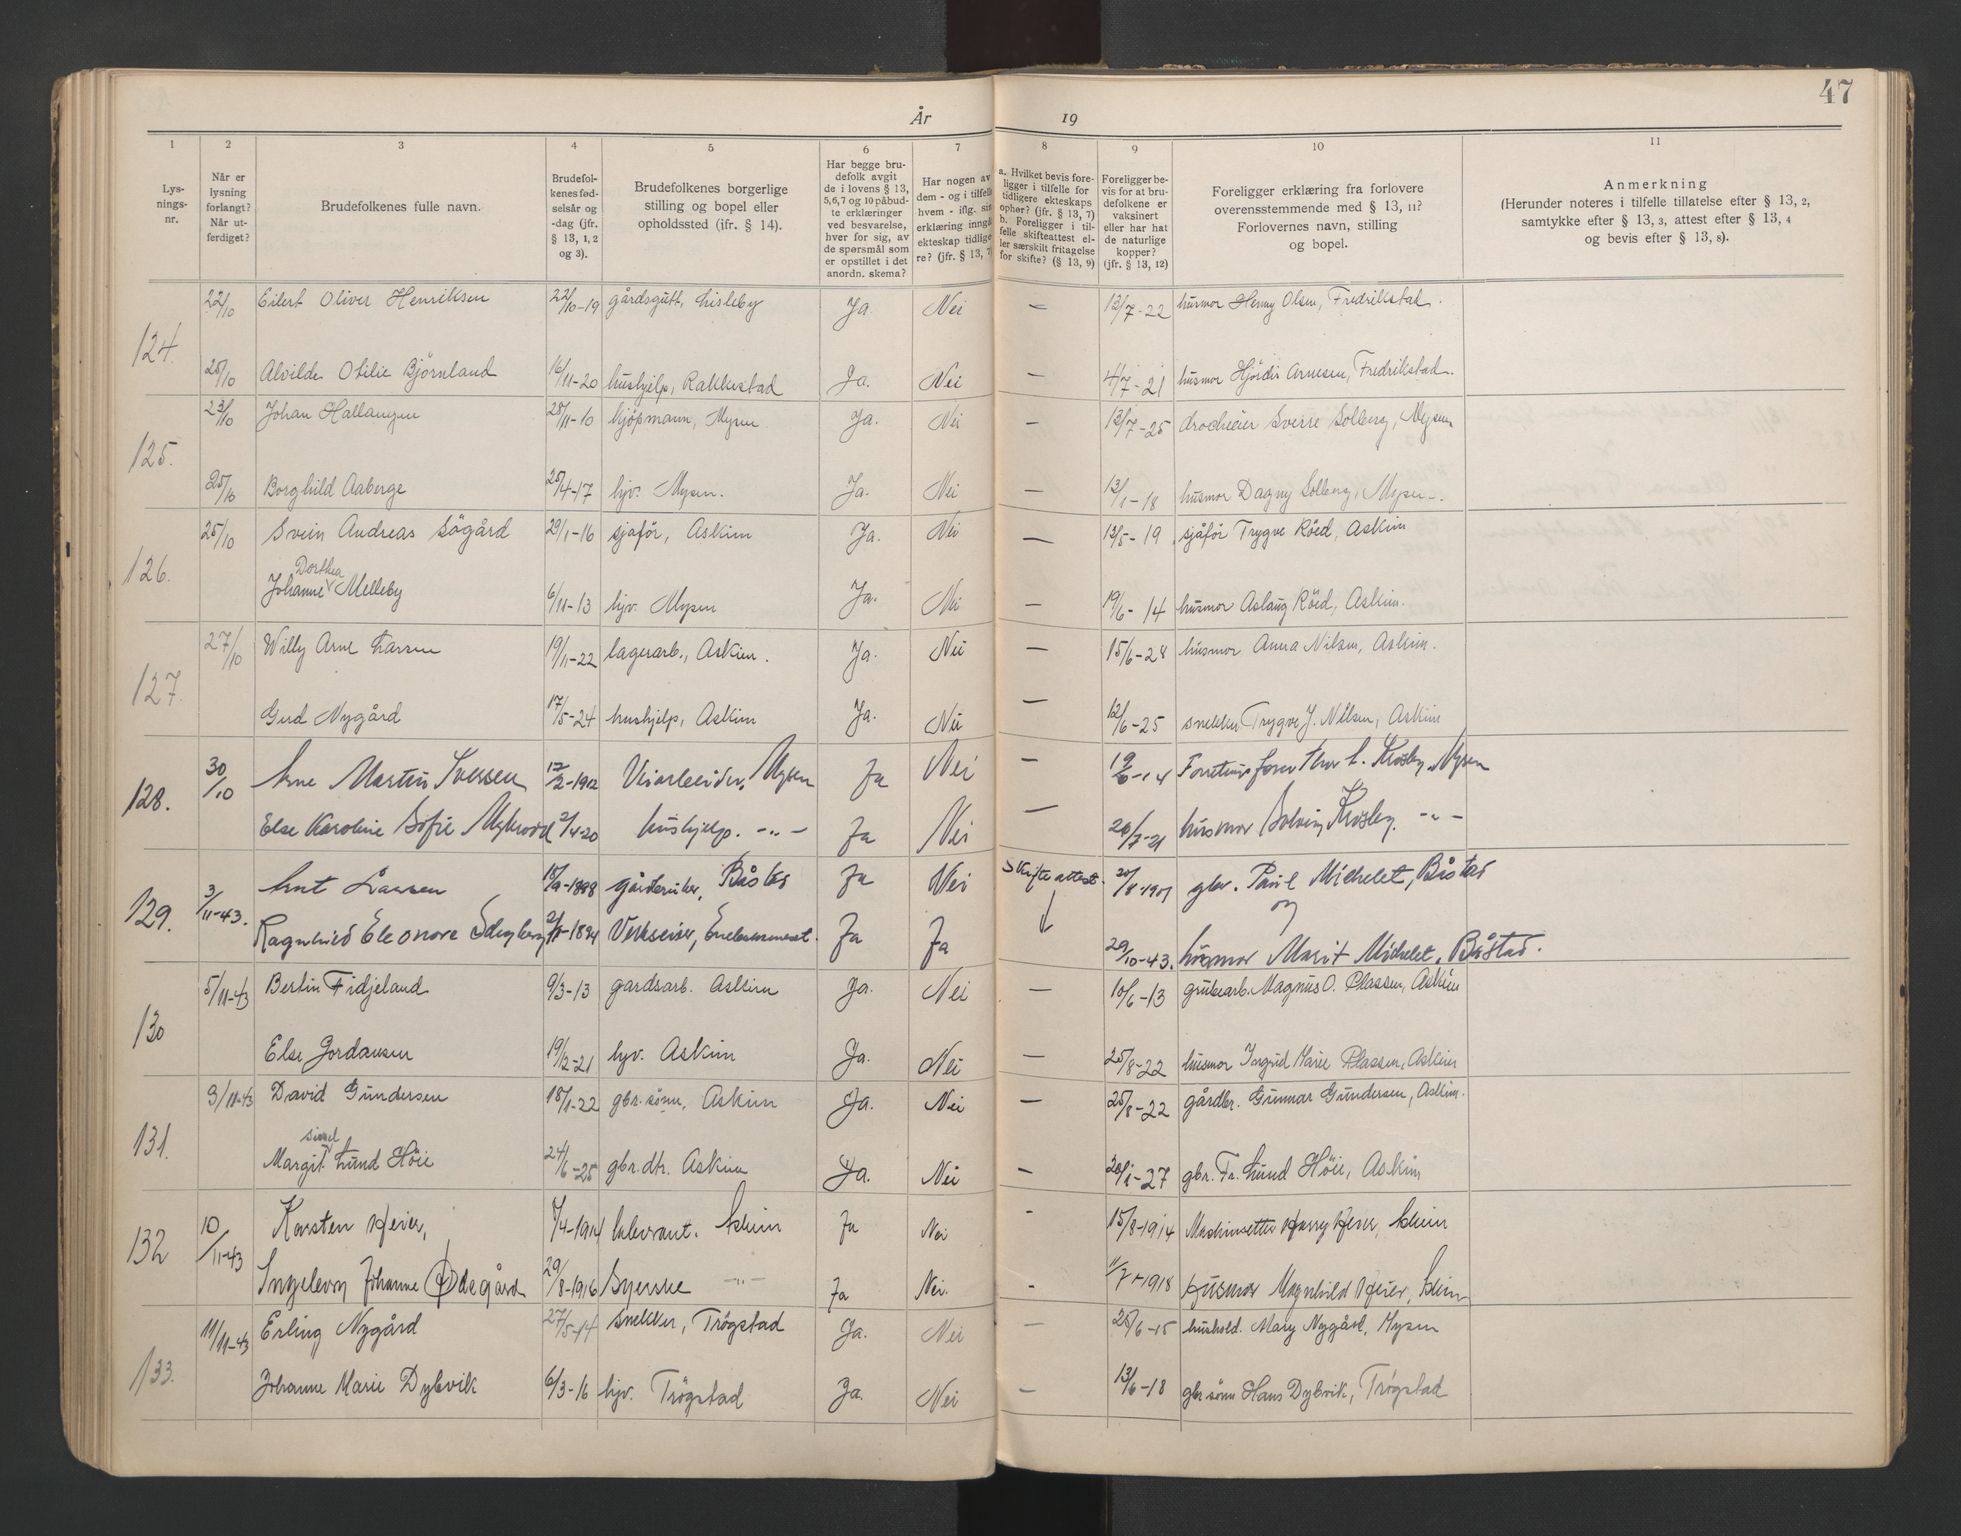 47
År 19
1 2 3 4 5 6 7 8 9 10 11
Lysnings-nr.
Når er lysning forlangt? Når utferdiget?
Brudefolkenes fulle navn.
Brudefolkenes fødselsår og -dag (jfr. § 13, 1, 2 og 3).
Brudefolkenes borgerlige stilling og bopel eller opholdssted (ifr. § 14).
Har begge brudefolk avgit de i lovens § 13, 5,6,7 og 10 påbudte erklæringer ved besvarelse, hver for sig, av de spørsmål som er opstillet i det anordn. skema?
Har nogen av dem - og i tilfelle hvem - iflg. sin erklæring inngå ekteskap tidligere? (jfr. § 13, 7
a. Hvilket bevis foreligger i tilfelle for tidligere ekteskaps ophør? (jfr. § 13, 7) b. Foreligger i tilfelle skifteattest eller særskilt fritagelse for skifte? (§ 13, 9)
Foreligger bevis for at brudefolkene er vaksinert eller har hat de naturlige kopper? (jfr. § 13, 12)
Foreligger erklæring fra forlovere overensstemmende med § 13, 11? Forlovernes navn, stilling og bopel.
Anmerkning (Herunder noteres i tilfelle tillatelse efter § 13, 2, samtykke efter § 13, 3, attest efter § 13, 4 og bevis efter § 13, 8).
124. 22/10 Eilert Oliver Henriksen 22/10-19 gårdsgutt, Lisleby Ja. Nei — 13/7-22 husmor Henny Olsen, Fredrikstad.
25/10 Alvilde Otilie Bjørnland 16/11-20 hushjelp, Rakkestad Ja. Nei — 4/7-21 husmor Hjördis Arnesen, Fredrikstad.
125. 23/10 Johan Hallangen 28/11-10 kjöpmann, Mysen Ja. Nei — 13/7-25 drosjeeier Sverre Solberg, Mysen
25/10 Borghild Aaberge 25/4-17 hjv. Mysen. Ja. Nei — 13/1-18 husmor Dagny Solberg, Mysen.
126. 25/10 Svein Andreas Sögård 29/1-16 sjåför, Askim Ja. Nei — 13/5-19 sjåför Trygve Röed, Askim
Johanne Dorthea Melleby 6/11-13 hjv. Mysen Ja. Nei — 19/6-14 husmor Aslaug Röed, Askim.
127. 27/10 Willy Arne Larsen 19/11-22 lagerarb., Askim. Ja. Nei — 15/6-28 husmor Anna Nilsen, Askim.
Gerd Nygård 17/5-24 hushjelp, Askim Ja. Nei — 12/6-25 snekker Trygve J. Nilsen, Askim
128. 30/10 Arne Martin Iversen 12/2-1912 Veiarbeider, Mysen Ja Nei — 19/6-14 Forretningsfører Thor L. Krosby, Mysen
Else Karoline Sofie 2/4-20 hushjelp. -"- Ja Nei — 20/7-21 husmor Solveig Krosby. -"-
129. 3/11-43. Knut Laasen 18/9-1898 gårdbruker, Båstad Ja Nei Skifteattest. 20/8-1901 gbr. Paul Michelet, Båstad
og
Ragnhild Eleonore 1894 Ja Ja 29/10-43. husmor Marit Michelet, Båstad.
130 5/11-43 Bertin Fidjeland 9/3-13 gardsarb. Askim Ja. Nei — 10/6-13 grubearb. Magnus O. Classen, Askim
Else Jordansen 19/12-21 hjv. Askim Ja. Nei — 25/8-22 husmor Ingrid Marie Classen, Askim
131. 9/11-43 David Gundersen 18/1-22 gbr. sönn, Askim Ja. Nei — 25/8-22 gårdbr. Gunnar Gundersen, Askim.
Margit Sissel Lund Höie 24/6-25 gbr. dtr. Askim Ja. Nei — 20/1-27 gbr. Fr. Lund Höie, Askim
132 10/11-43 Karsten Heier, 7/4-1914 Askim Ja Nei - 15/8-1914 Maskinsetter Harry Heier, Askim
Ingeborg Johanne Ødegård 29/8-1916 Syerske -"- Ja Nei. - 11/7-1918 Husmor Magnhild Heier, Askim
133. 11/11-43 Erling Nygård 27/5-14 snekker, Trøgstad Ja. Nei — 25/6-15 hushold. Mary Nygård, Mysen
Johanne Marie Dybvik 6/3-16 hjv. Trögstad Ja. Nei — 13/6-18 gbr sönn Hans Dybvik, Trögstad